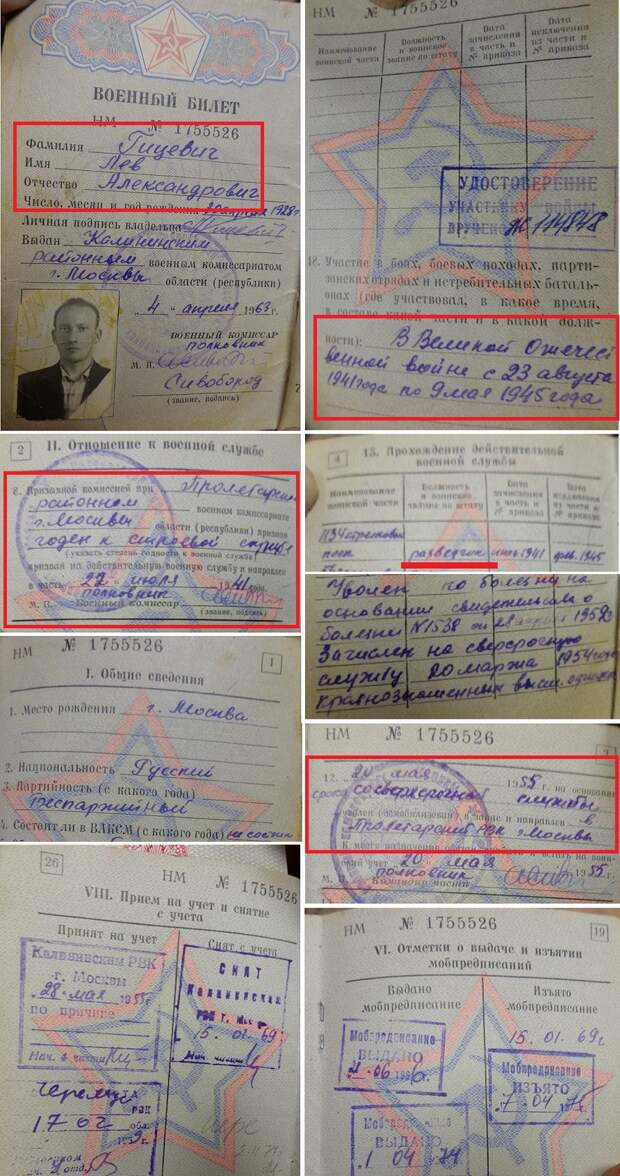 ВОЕННЫЙ БИЛЕТ
НМ № 1755526
Фамилия Гицевич
Имя Лев
Отчество Александрович
Число, месяц и год рождения 1928 г.
Личная подпись владельца
Выдан Калининским
районным военным комиссариатом
г. Москвы области (республики)
„4" апреля 1963 г.
ВОЕННЫЙ КОМИССАР
полковник
М. П.
Сивобород
(звание, подпись)
НМ № 1755526
Наименование воинской части
Должность и воинское звание по штату
Дата зачисления в часть и № приказа
Дата исключения из части и № приказа
УДОСТОВЕРЕНИЕ
УЧАСТНИКУ ВОЙНЫ
ВРУЧЕНО
Участие в боях, боевых походах, парти-
занских отрядах и истребительных баталь-
онах (где участвовал, в какое время,
в составе какой части и в какой долж-
ности): В Великой Отечест
венной войне с 23 августа
1941 года по 9 мая 1945 года
2
II. Отношение к военной службе
Призывной комиссией при Пролетарском
районном военном комиссариате
г. Москвы области (республики) признан
годен к строевой службе
(указать степень годности к военной службе)
призван на действительную военную службу и направлен
в часть 22 июля 1941 года.
полковник
М. П. Военный комиссар
(звание, подпись)
4
13. Прохождение действительной
военной службы
Наименование воинской части
Должность и воинское звание по штату
Дата зачисления в часть и № приказа
1134 стрелковый
полк разведчик 1941 1945
Уволен по болезни на
основании свидетельства о
болезни N 1538 от
Зачислен на сверхсрочную
службу 20 марта 1954 года
НМ № 1755526
1
I. Общие сведения
1. Место рождения г. Москва
2. Национальность Русский
3. Партийность (с какого года)
Беспартийный
4. Состоял ли в ВЛКСМ (с какого года) не состоял
НМ № 1755526
12. 20 мая 1955 г. на основании
со сверхсрочной службы
уволен (демобилизован) в запас и направлен в
Пролетарский РВК г. Москвы
учет 20 мая 1955 г.
полковник
М. П. Командир части
26
НМ № 1755526
VIII. Прием на учет и снятие
с учета
Принят на учет
Снят с учета
Калининским РВК
г. Москвы
28 мая 1955 г.
по причине
Нач. 2 части
СНЯТ
Калининским
РВК г.
15. 01. 69 г.
РВК
17 02
НМ № 1755526
19
VI. Отметки о выдаче и изъятии
мобпредписаний
Выдано
мобпредписание
Изъято
мобпредписание
15. 01. 69 г.
Мобпредписание
ВЫДАНО
Мобпредписание
ИЗЪЯТО
7 04 75
Мобпредписание
ВЫДАНО
1 04 74